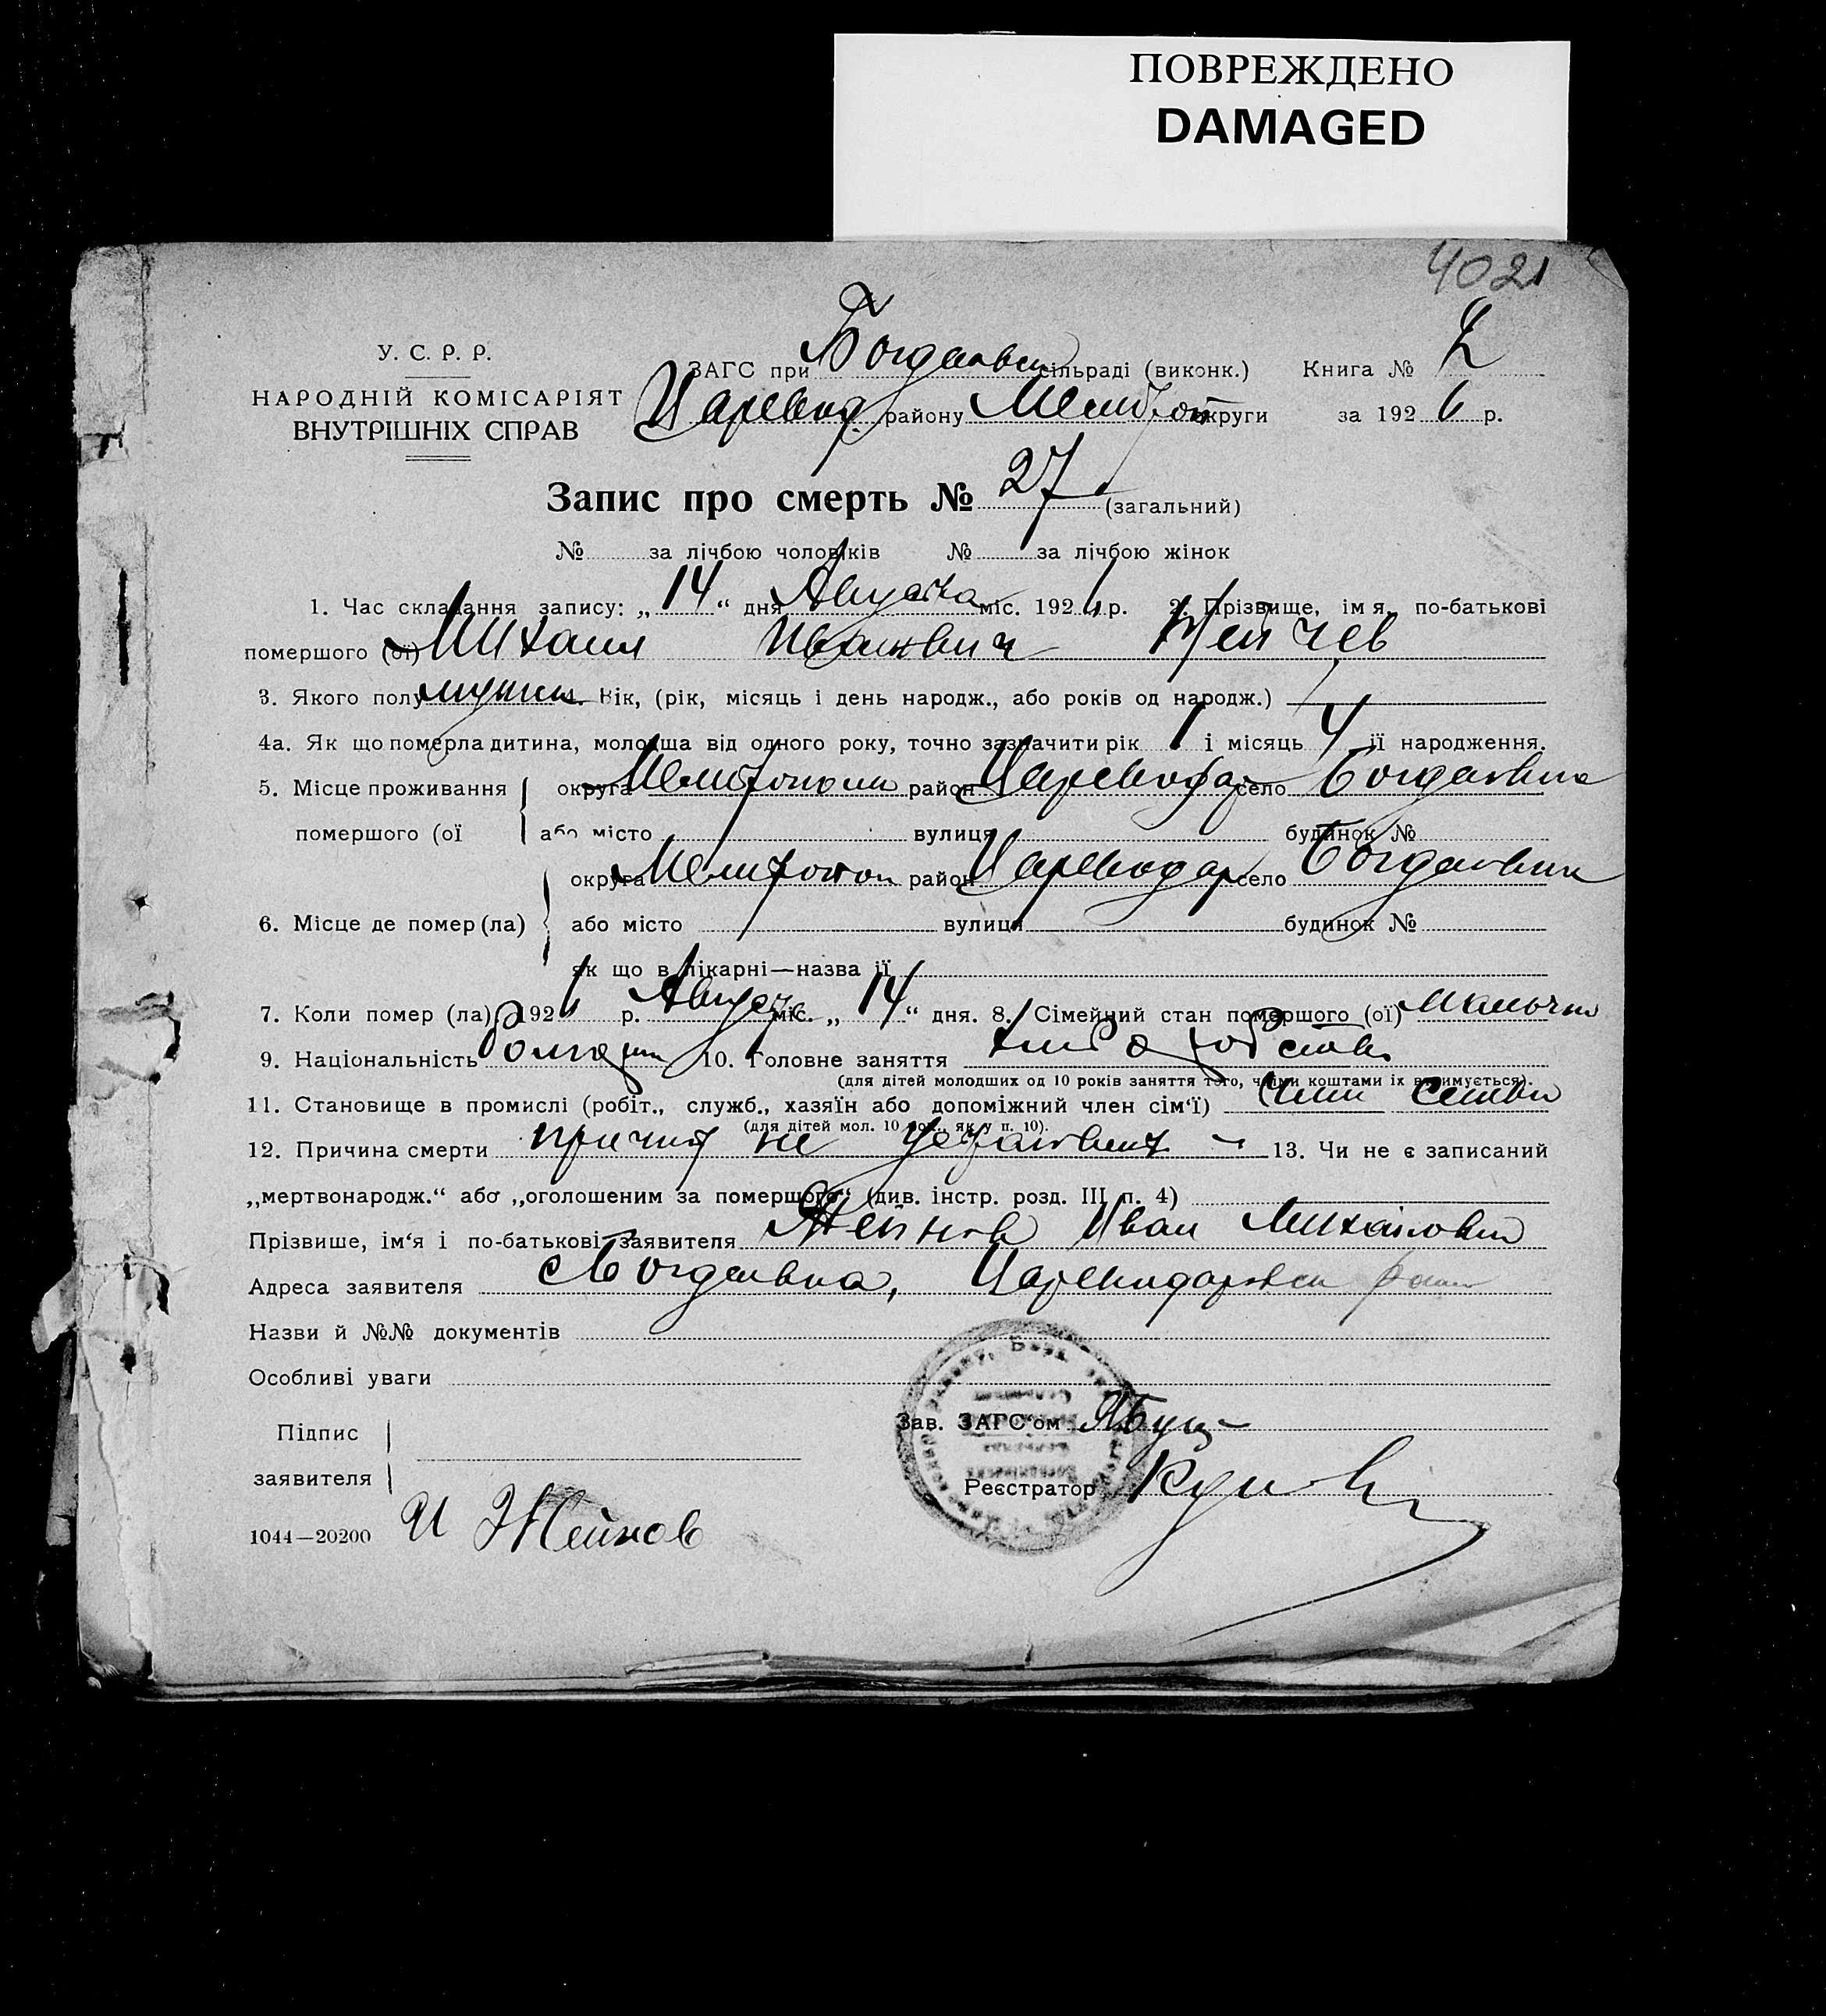 ПОВРЕЖДЕНО
DAMAGED
4021
У. С. Р. Р.
НАРОДНІЙ КОМІСАРІЯТ
ВНУТРІШНІХ СПРАВ
ЗАГС при Богдановск сільраді (виконк.) Книга № 2
Царевод. району Мелитоп округи за 1926 р.
Запис про смерть № 27 (загальний)
№ за лічбою чоловіків № за лічбою жінок
1. Час складання запису: „14“ дня Августа міс. 1926 р. 2. Прізвище, ім я, по-батькові
помершого (ої) Михаил Иванович
3. Якого полу мужск 4. Вік, (рік, місяць і день народж., або років од народж.)
4а. Як що померла дитина, молодша від одного року, точно зазначити рік 1 і місяць 4 її народження.
5. Місце проживання округа Мелитополь район Цареводар село Богдановка
помершого (ої або місто вулиця будинок №
округа Мелитопол район Цареводар село Богдановка
6. Місце де помер (ла) або місто вулиця будинок №
як що в лікарні—назва її
7. Коли помер (ла) 1926 р. Августа міс. „14“ дня. 8. Сімейний стан помершого (ої)
9. Національність болгарин 10. Головне заняття хлеборобство
(для дітей молодших од 10 років заняття того, чиїми коштами їх втримується).
11. Становище в промислі (робіт., служб., хазяїн або допоміжний член сім‘ї) Член семьи
(для дітей мол. 10 рок., як у п. 10).
12. Причина смерти причина не установлена 13. Чи не є записаний
„мертвонародж.“ або „оголошеним за помершого“ (див. інстр. розд. III п. 4)
Прізвище, ім‘я і по-батькові заявителя Жейнов Иван Михайлович
Адреса заявителя с Богдановка, Цареводаровск район
Назви й №№ документів
Особливі уваги
Підпис
заявителя
Зав. ЗАГС‘ом
Реєстратор
1044—20200 И Жейнов